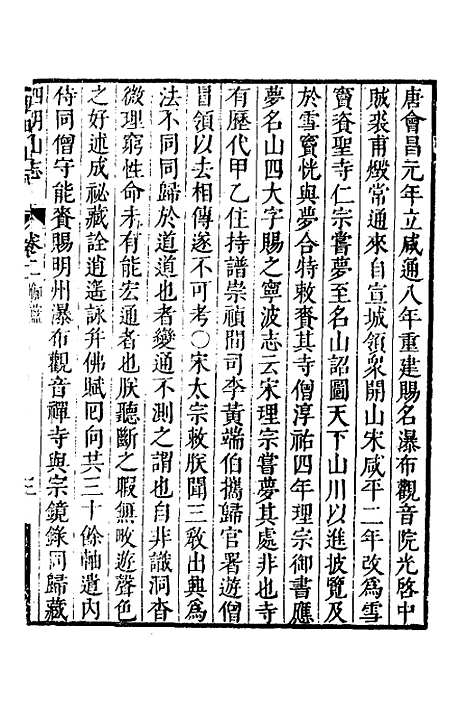 唐會昌元年立咸通八年重建賜名瀑布觀音院光啓中
賊裘甫燬常通來自宣城領衆開山宋咸平二年改為雪
竇資聖寺仁宗嘗夢至名山詔圖天下山川以進披覽及
於雪竇恍與夢合特敕賚其寺僧淳祐四年理宗御書應
夢名山四大字賜之寧波志云宋理宗嘗夢其處非也寺
有歷代甲乙住持譜崇禎間司李黃端伯攜歸官署遊僧
冒領以去相傳遂不可考○宋太宗敕朕聞三敎出興為
法不同同歸於道道也者變通不測之謂也自非識洞杳
微理窮性命未有能宏通者也朕聽斷之暇無敀遊聲色
之好述成祕藏詮逍遙詠并佛賦回向共三十餘軸遺内
侍同僧守能賚賜明州瀑布觀音禪寺與宗鏡錄同歸藏
四明山志 卷二 三